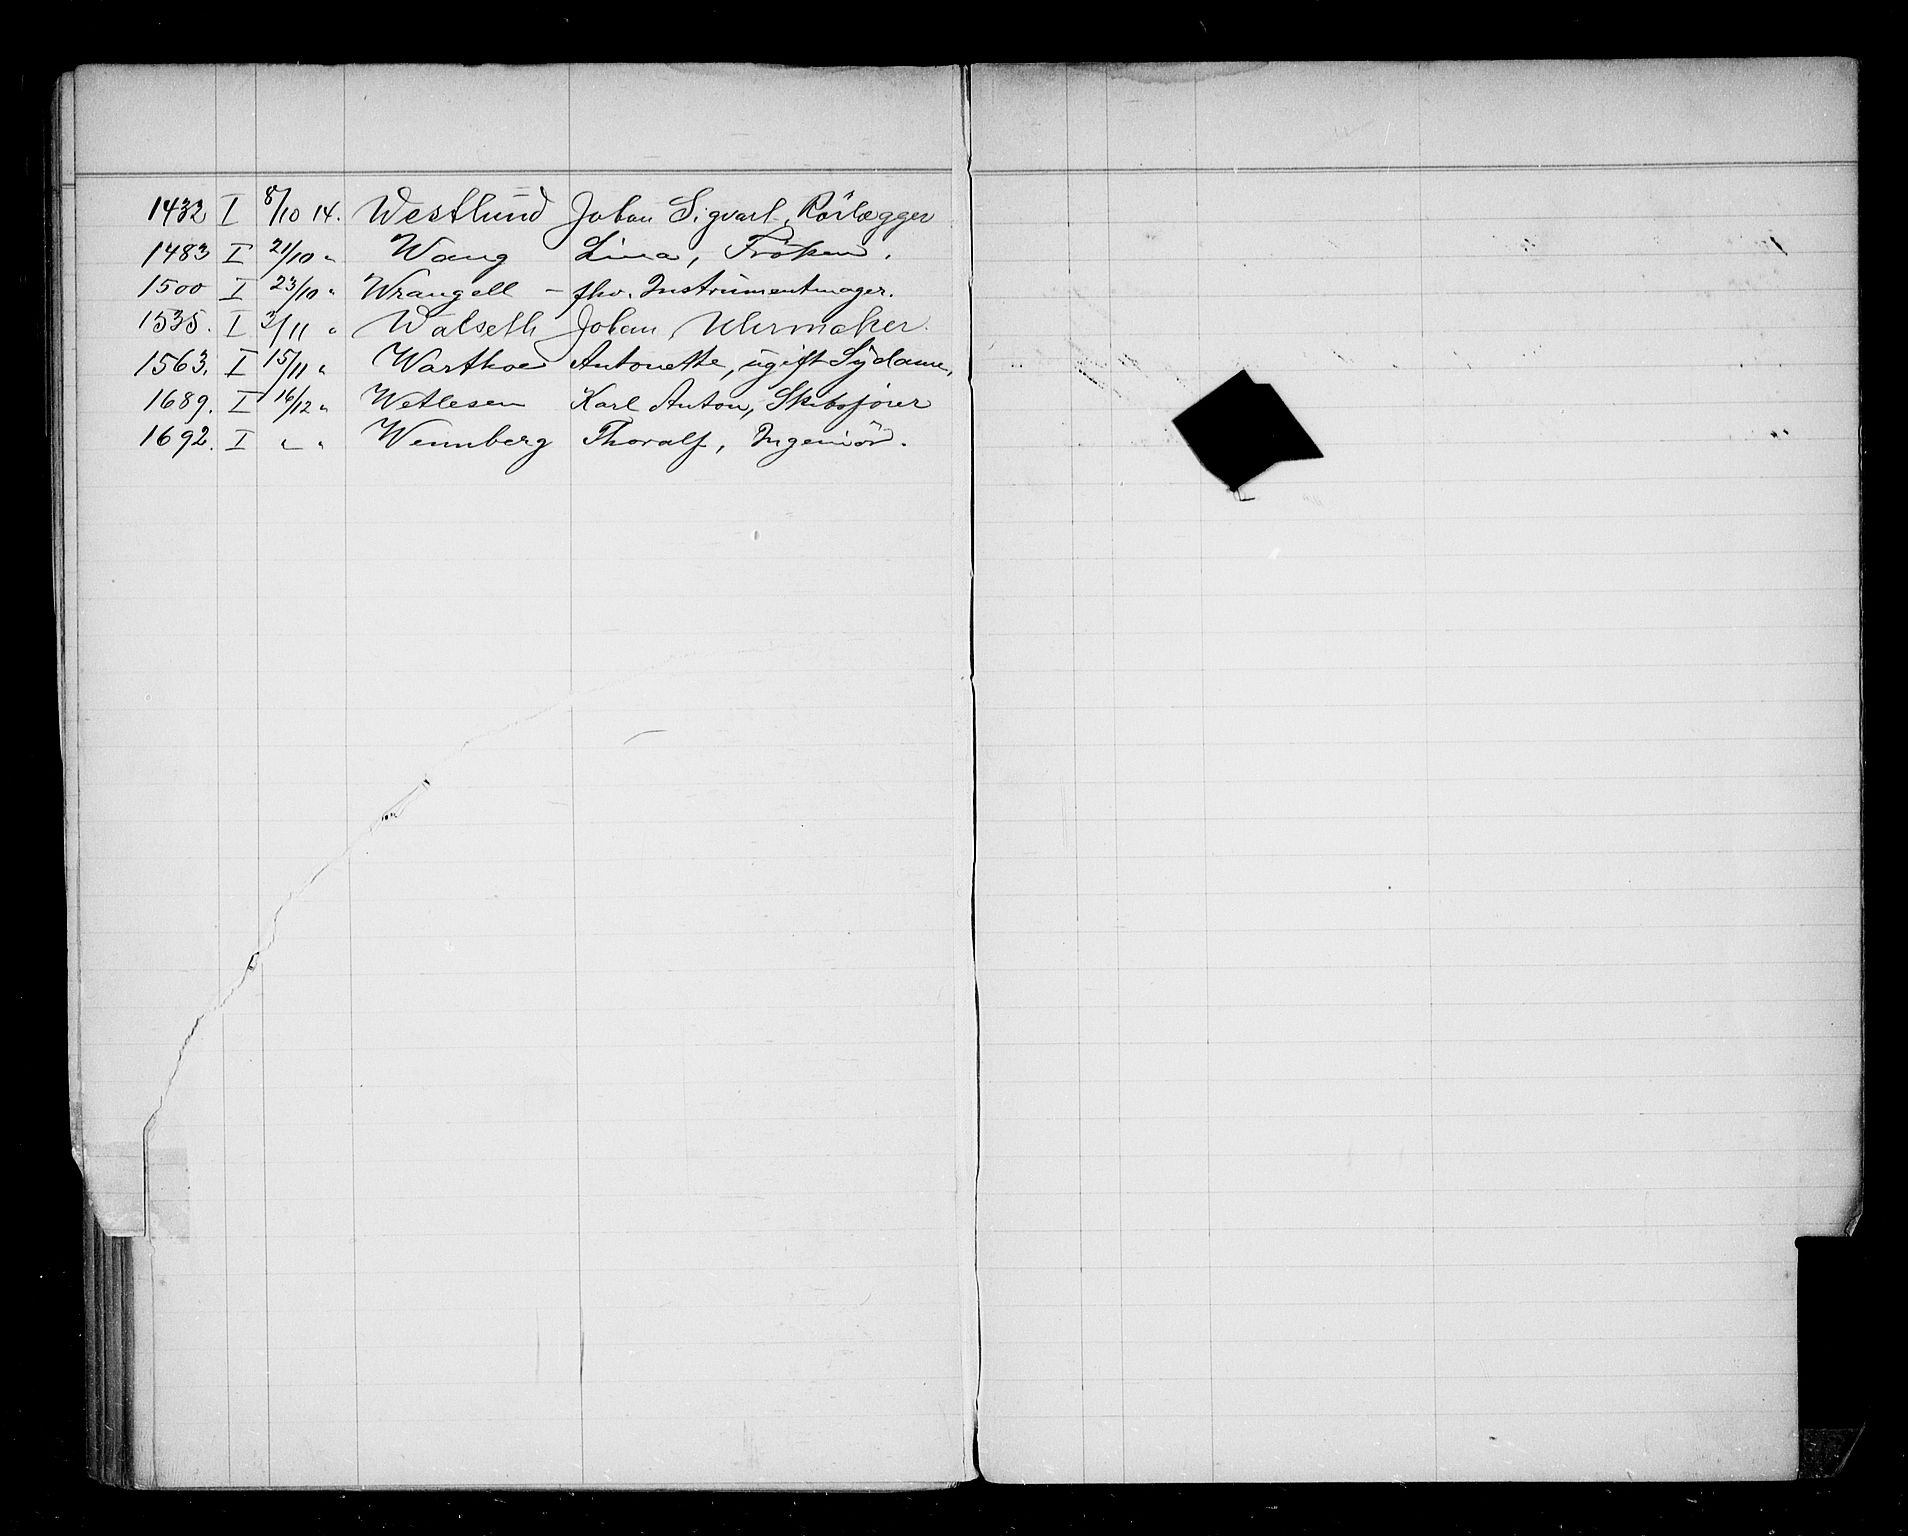 1432 I 8/10 14. Westlund Johan Sigvart, Rörlægger
1483 I 21/10 " Wang Lina, Fröken.
1500 I 23/10 " Wrangell – fhv. Instrumentmager.
1535. I 3/11 " Walseth Johan, Uhrmaker.
1563. I 15/11 " Antonette, ugift Sydame,
1689. I 16/12 " Wetlesen Karl Anton, Skibsfører
1692. I " " Wennberg Thoralf, Ingeniör.